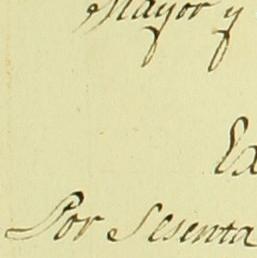 Mayor y
Ex
Por Sesenta